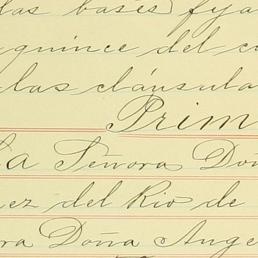 las bases fija
quince del c
las cláusula
Prim
La Señora Doñ
ez del Rio de
ra Doña Ange